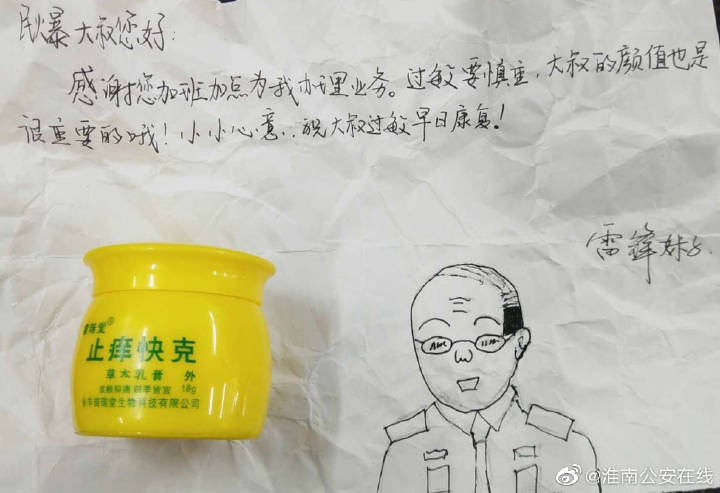 民爆大叔您好:
感谢您加班加点为我办理业务。过敏要慎重,大叔的颜值也是
很重要的哦!小小心意,祝大叔过敏早日康复!
雷锋妹子.
瑞堂®
止痒快克
草本乳膏 外
皮肤抑菌 四季皆宜 18g
生物科技有限公司
@淮南公安在线